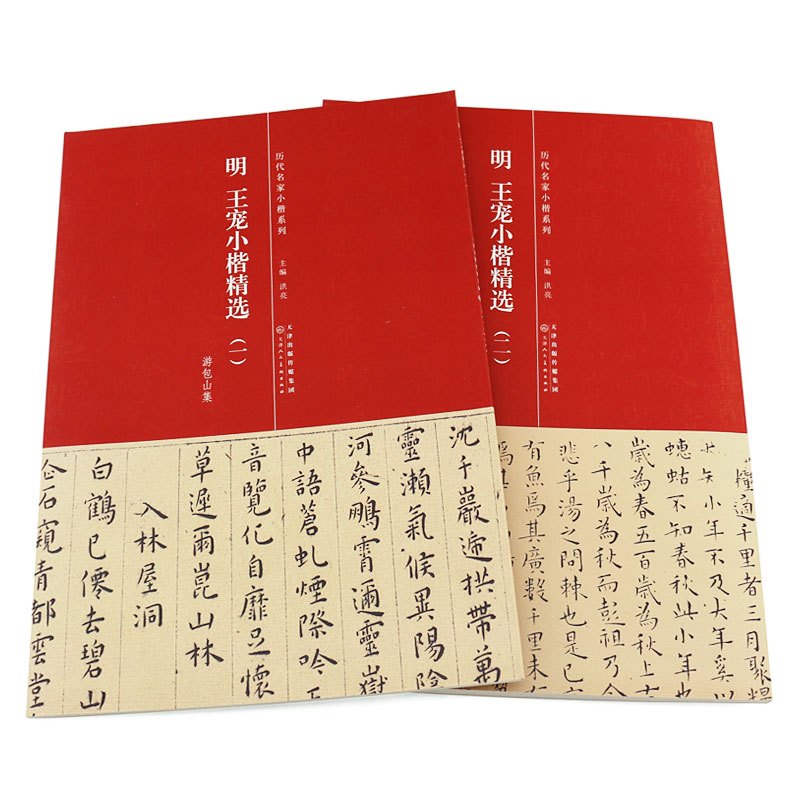 历代名家小楷系列
主编 洪亮
天津出版传媒集团
天津人民美术出版社
明 王宠小楷精选（一）
游包山集
沈千巖遞拱帶萬
靈瀬氣候異陽陰
河參鵬霄邇靈嶽
中語蒼虬煙際吟
音覽化自靡足懷
草遲爾崑山林
入林屋洞
白鶴已僊去碧山
石窺青都雲堂
历代名家小楷系列
主编 洪亮
天津出版传媒集团
天津人民美术出版社
明 王宠小楷精选（二）
糧適千里者三月聚糧
小年不及大年奚以
蟪蛄不知春秋此小年也
歲為春五百歲為秋上古
八千歲為秋而彭祖乃今
悲乎湯之問棘也是已
有魚焉其廣數千里未有